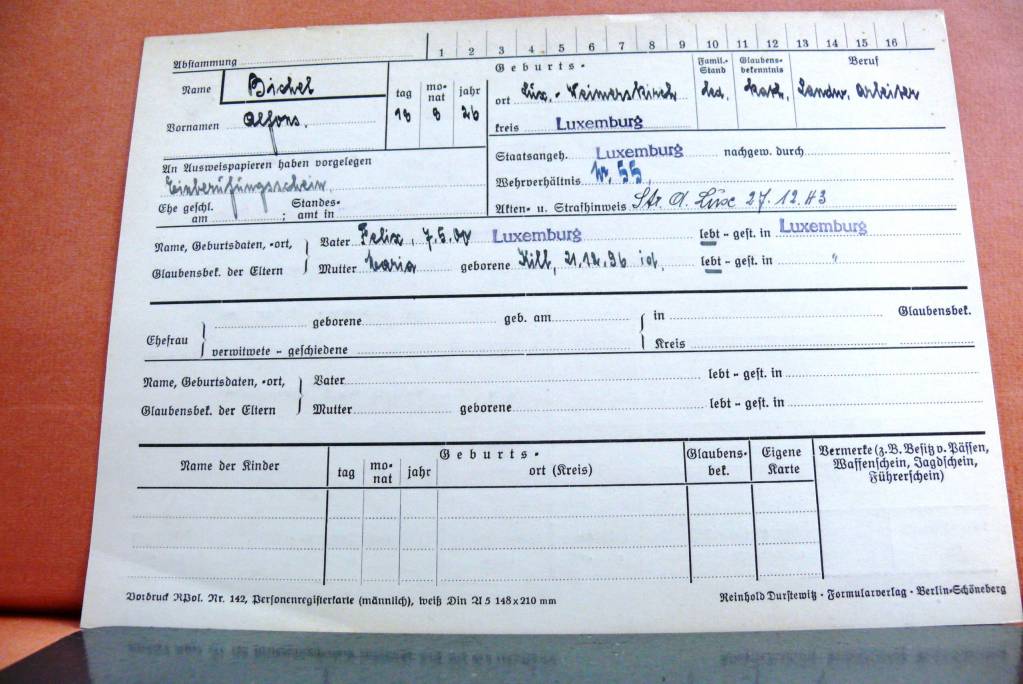 Abstammung 1 2 3 4 5 6 7 8 9 10 11 12 13 14 15 16
Name Bichel
Vornamen Alfons.
tag monat jahr
18 8 26
Geburts-
ort Lux.-Weimerskirch
kreis Luxemburg
Famil.-Stand
led.
Glaubens-bekenntnis
kath.
Beruf
Landw. Arbeiter
An Ausweispapieren haben vorgelegen
Einberufungsschein.
Ehe geschl. am ; Standes-amt in
Staatsangeh. Luxemburg nachgew. durch
Wehrverhältnis W. 55
Akten- u. Strafhinweis Str. A. Luxe 27.12.43
Name, Geburtsdaten, -ort, Glaubensbek. der Eltern
Vater Felix, 7.5.00 Luxemburg lebt - gest. in Luxemburg
Mutter Maria geborene Kill, 21.12.96 lebt - gest. in "
Ehefrau geborene geb. am in Glaubensbek.
verwitwete - geschiedene Kreis
Name, Geburtsdaten, -ort, Glaubensbek. der Eltern
Vater lebt - gest. in
Mutter geborene lebt - gest. in
Name der Kinder
Geburts-
tag monat jahr ort (Kreis)
Glaubens-bek.
Eigene Karte
Vermerke (z.B. Besitz v. Pässen,
Waffenschein, Jagdschein,
Führerschein)
Vordruck RPol. Nr. 142, Personenregisterkarte (männlich), weiß Din A 5 148 x 210 mm
Reinhold Durstewitz · Formularverlag · Berlin-Schöneberg